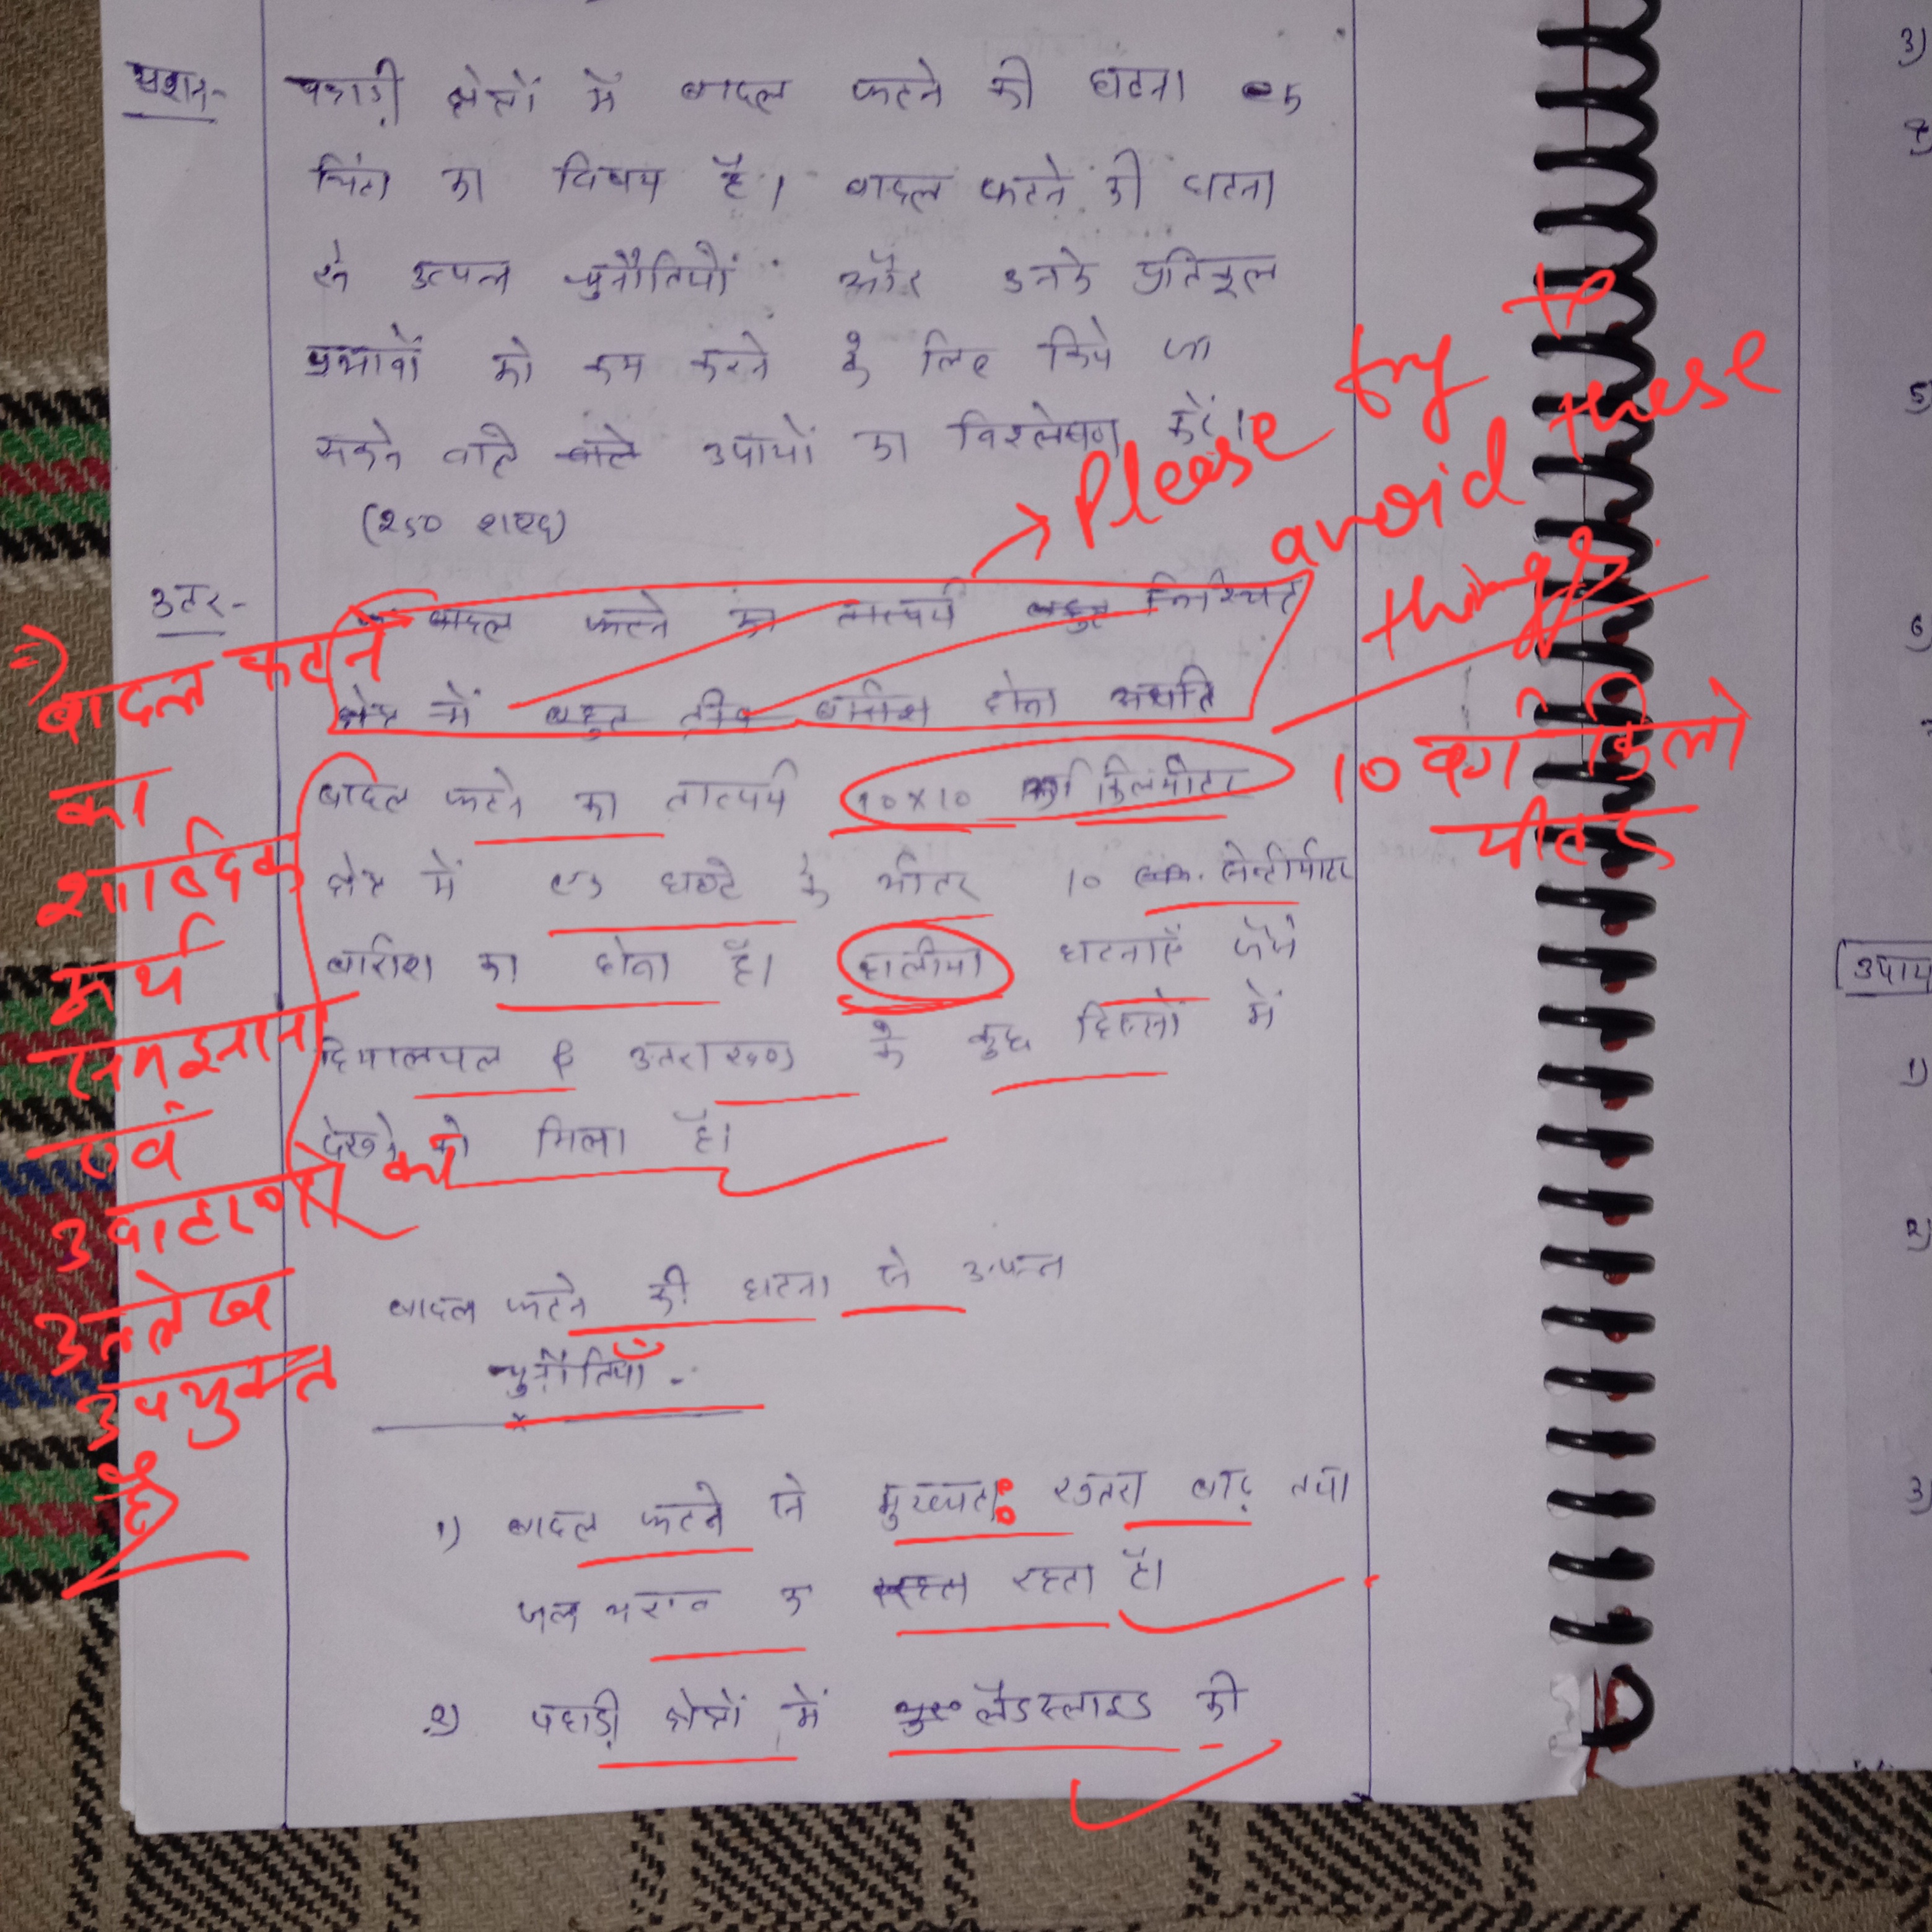 प्रश्न- पहाड़ी क्षेत्रों में बादल फटने की घटना एक
चिंता का विषय है। बादल फटने की घटना
से उत्पन्न चुनौतियों और उनके प्रतिकूल
प्रभावों को कम करने के लिए किये जा
सकने वाले वाले उपायों का विश्लेषण करें।
(250 शब्द)
→ Please try to
avoid these
things.
उत्तर- बादल फटने का तात्पर्य बहुत निश्चित
क्षेत्र में बहुत तीव्र बारिश होना अर्थात
बादल फटने का तात्पर्य 10x10 किलोमीटर
10 वर्ग किलो
मीटर
क्षेत्र में एक घण्टे के भीतर 10 सेन्टीमीटर
बारिश का होना है। हालीया घटनाएँ जैसे
हिमालचल & उत्तराखण्ड के कुछ हिस्सों में
देखने को मिला है।
⇒ बादल फटने
का
शाब्दिक
अर्थ
समझाना
एवं
उदाहरणों का
उल्लेख
उपयुक्त
है
बादल फटने की घटना से उत्पन्न
चुनौतियाँ -
1) बादल फटने से मुख्यतः खतरा बाढ़ तथा
जल भराव का रहता है।
2) पहाड़ी क्षेत्रों में लैंडस्लाइड की
3)
5)
6)
उपाय
1)
2)
3)